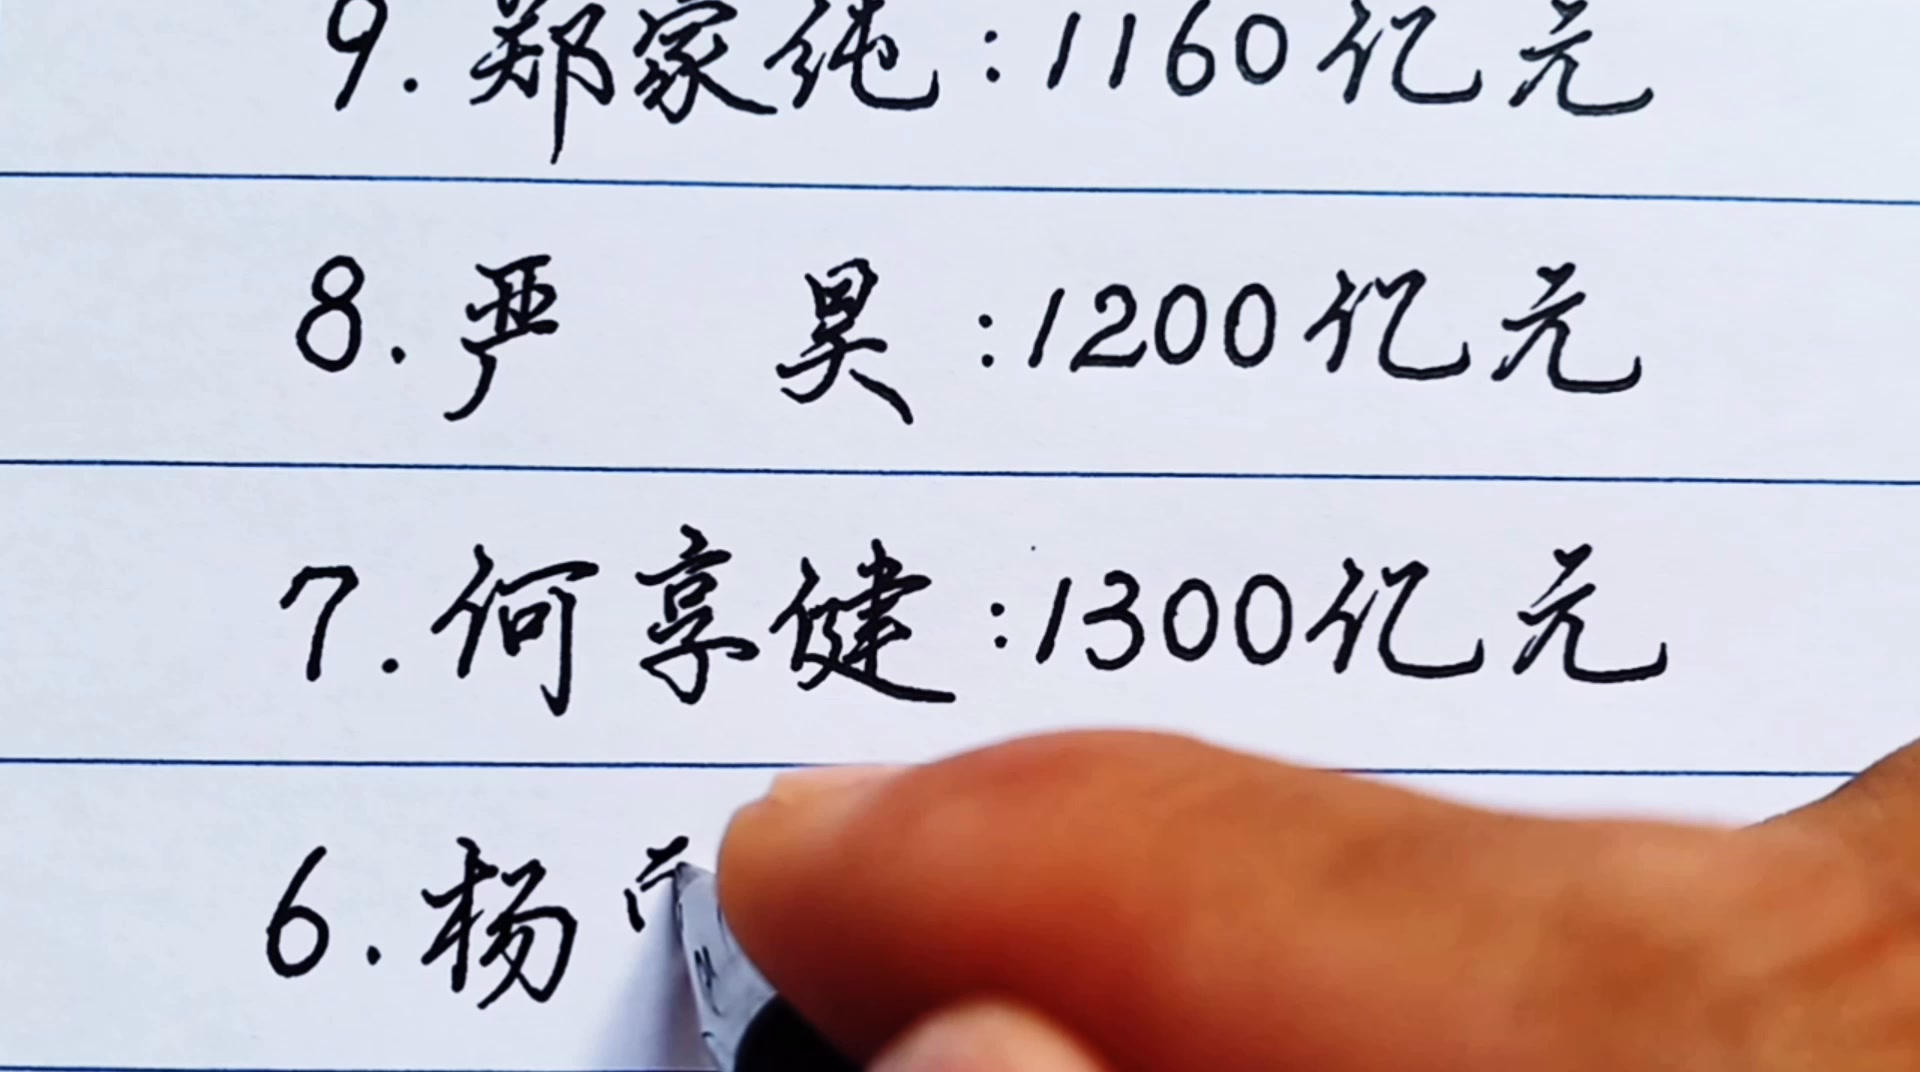 9.郑家纯:1160亿元
8.严 昊:1200亿元
7.何享健:1300亿元
6.杨